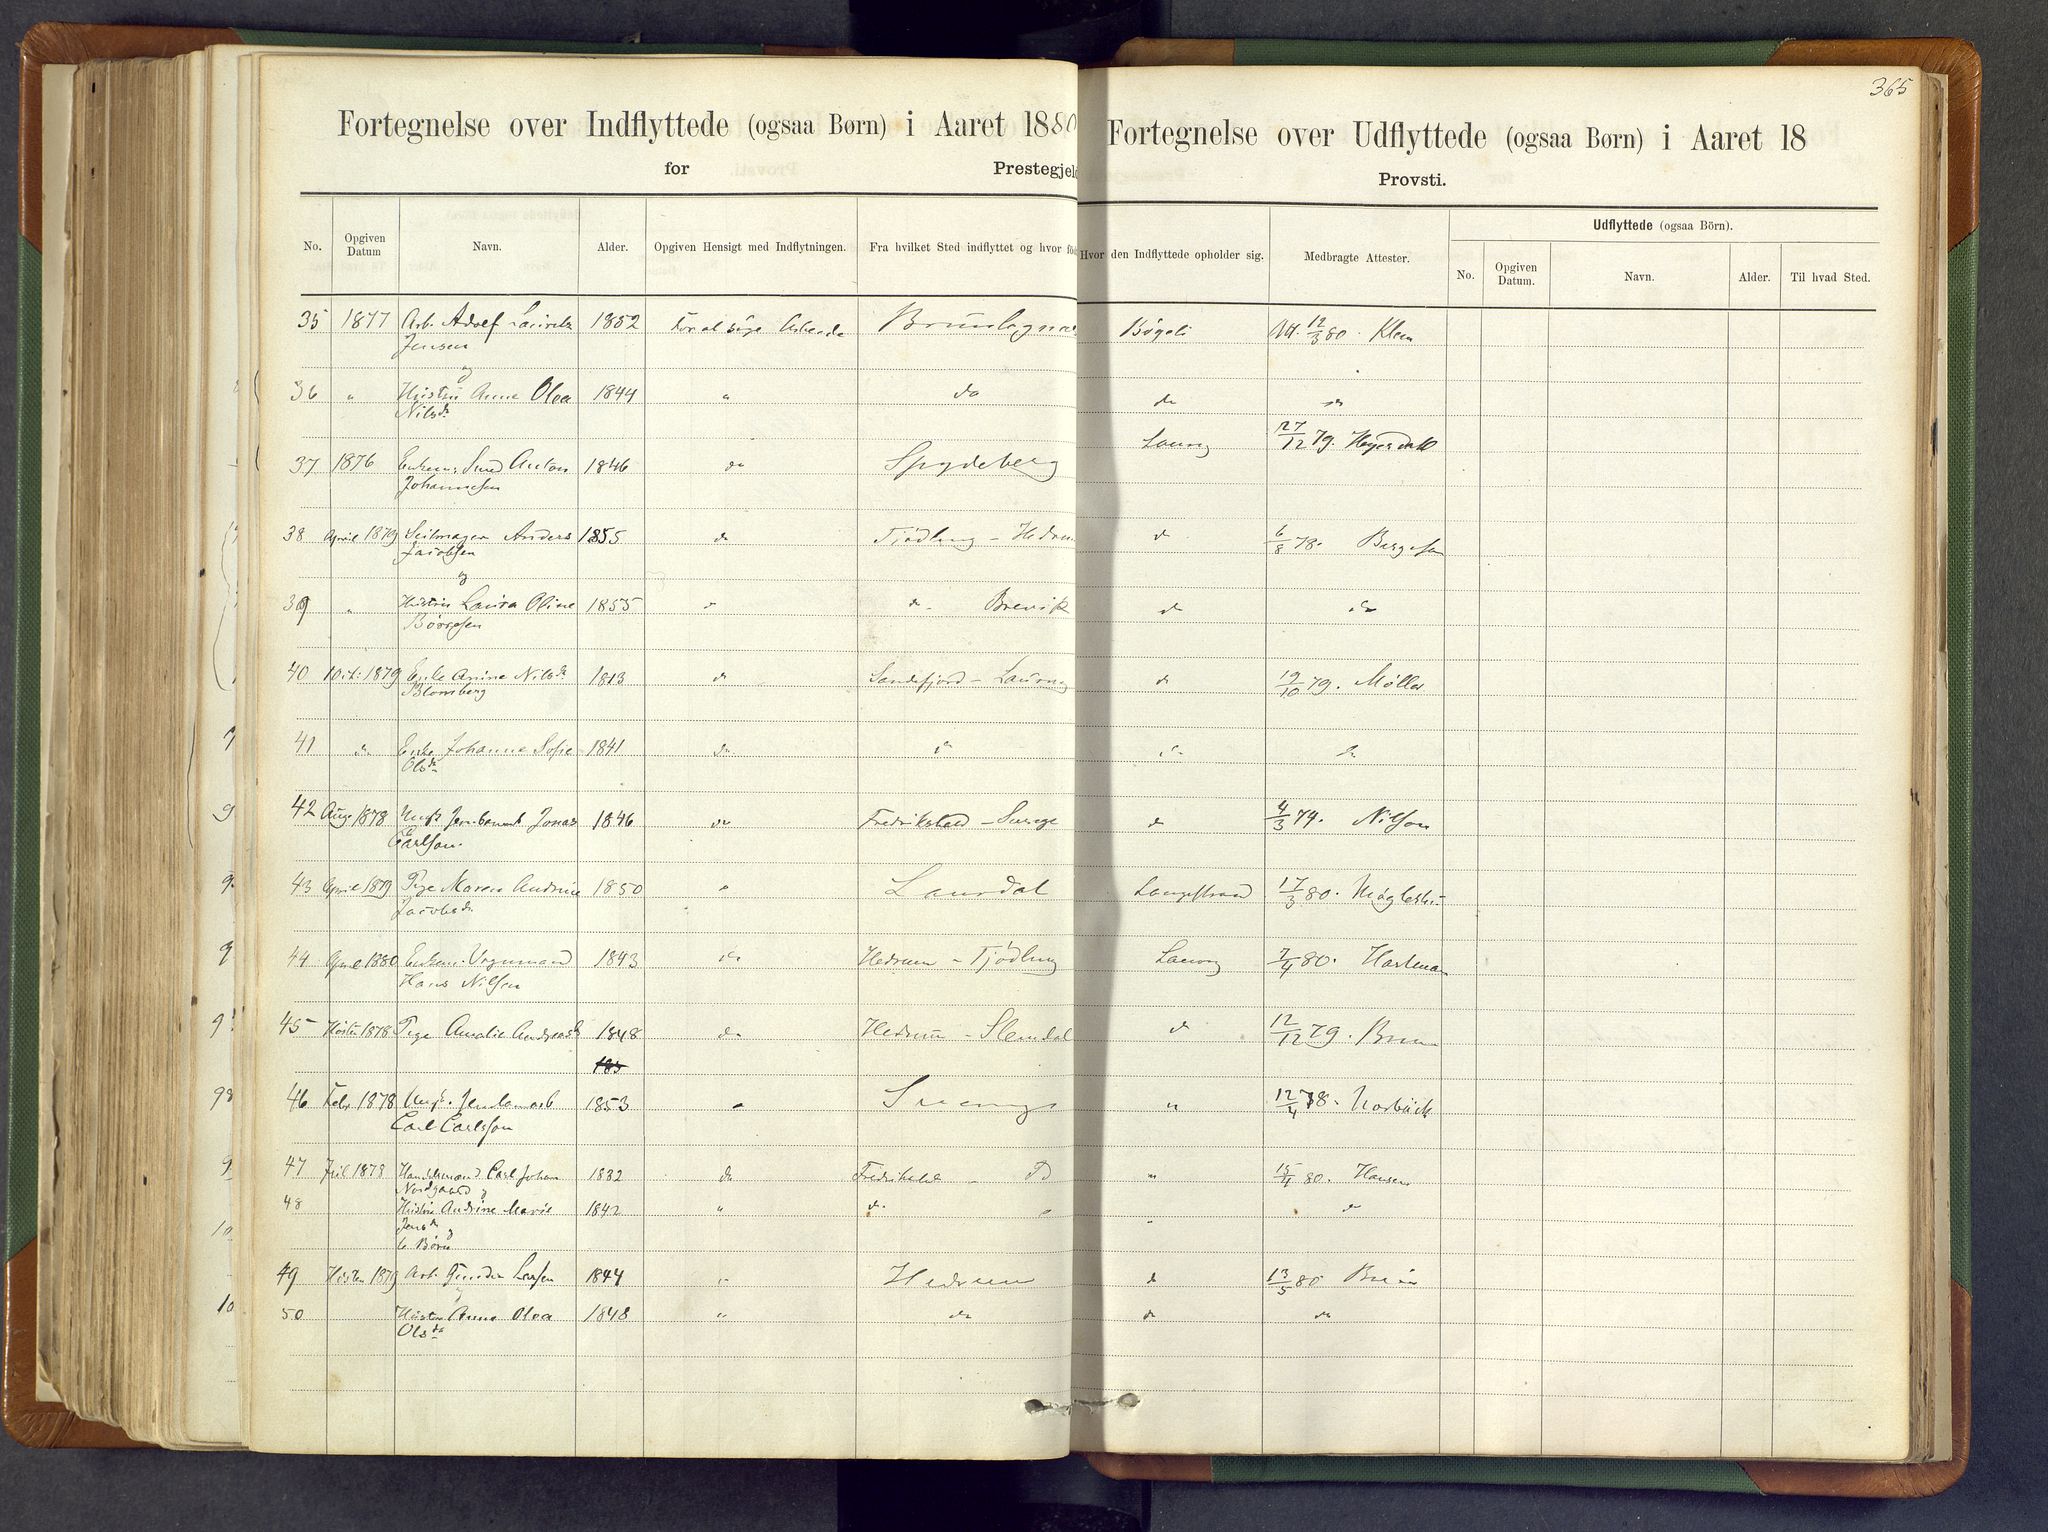 365
Fortegnelse over Indflyttede (ogsaa Børn) i Aaret 1880
for Prestegjeld
Fortegnelse over Udflyttede (ogsaa Børn) i Aaret 18
Provsti.
No. Opgiven Datum Navn. Alder. Opgiven Hensigt med Indflytningen. Fra hvilket Sted indflyttet og hvor fød
Hvor den Indflyttede opholder sig. Medbragte Attester. Udflyttede (ogsaa Börn).
No. Opgiven Datum. Navn. Alder. Til hvad Sted.
35 1877 Arb. Adolf 1852 For at søge Arbeide Bøgeli Att. 12/3 80. Klem
Jensen
og
36 " Hustru Anne Olea 1844 " do do do
Nilsdr
37 1876 Enkem. Smed Anton 1846 do Spydeberg Laurvig 27/12 79. Heyerdahl
Johannesen
38 April 1879 Seilmager Anders 1855 do Tjødling - Hedrum do 6/8 78.
Jacobsen
og
39 " Hustru Laura Oline 1855 do do Brevik do do
Børresen
40 Oct. 1879 Enke Anine Nilsdr 1813 do Sandefjord - Laurvig do 19/10 79. Møller
Blomberg
41 do Enke Johanne Sofie 1841 do do do do
Olsdr
42 Aug 1878 Ungk. Jonas 1846 do Fredrikshald - Sverge do 4/3 79. Nilson
Carlson.
43 April 1879 Pige Maren Andrine 1850 " Laurdal Langestrand 17/3 80.
Jacobsdr
44 April 1880 Enkem. 1843 do Hedrum - Tjødling Laurvig 7/4 80. Hartman
Hans Nilsen
45 Høsten 1878 Pige Amalie 1848 do Hedrum - Slemdal do 12/12 79. Bruun
46 Febr 1878 Ungk. 1853 " Sverige " 12/4 78.
Carl Carlsson
47 Juli 1878 Handelsmand Carl Johan 1832 do Fredrikshald - do " 15/4 80. Hansen
Nordgaard og
48 Hustru Andrine Marie 1842 " do " " do
Jensdr og
6 Børn
49 Høsten 1879 Arb. Gunder Larsen 1844 " Hedrum do 13/5 80 Bruun
og
50 Hustru Anne Olea 1848 " do do do
Olsdr